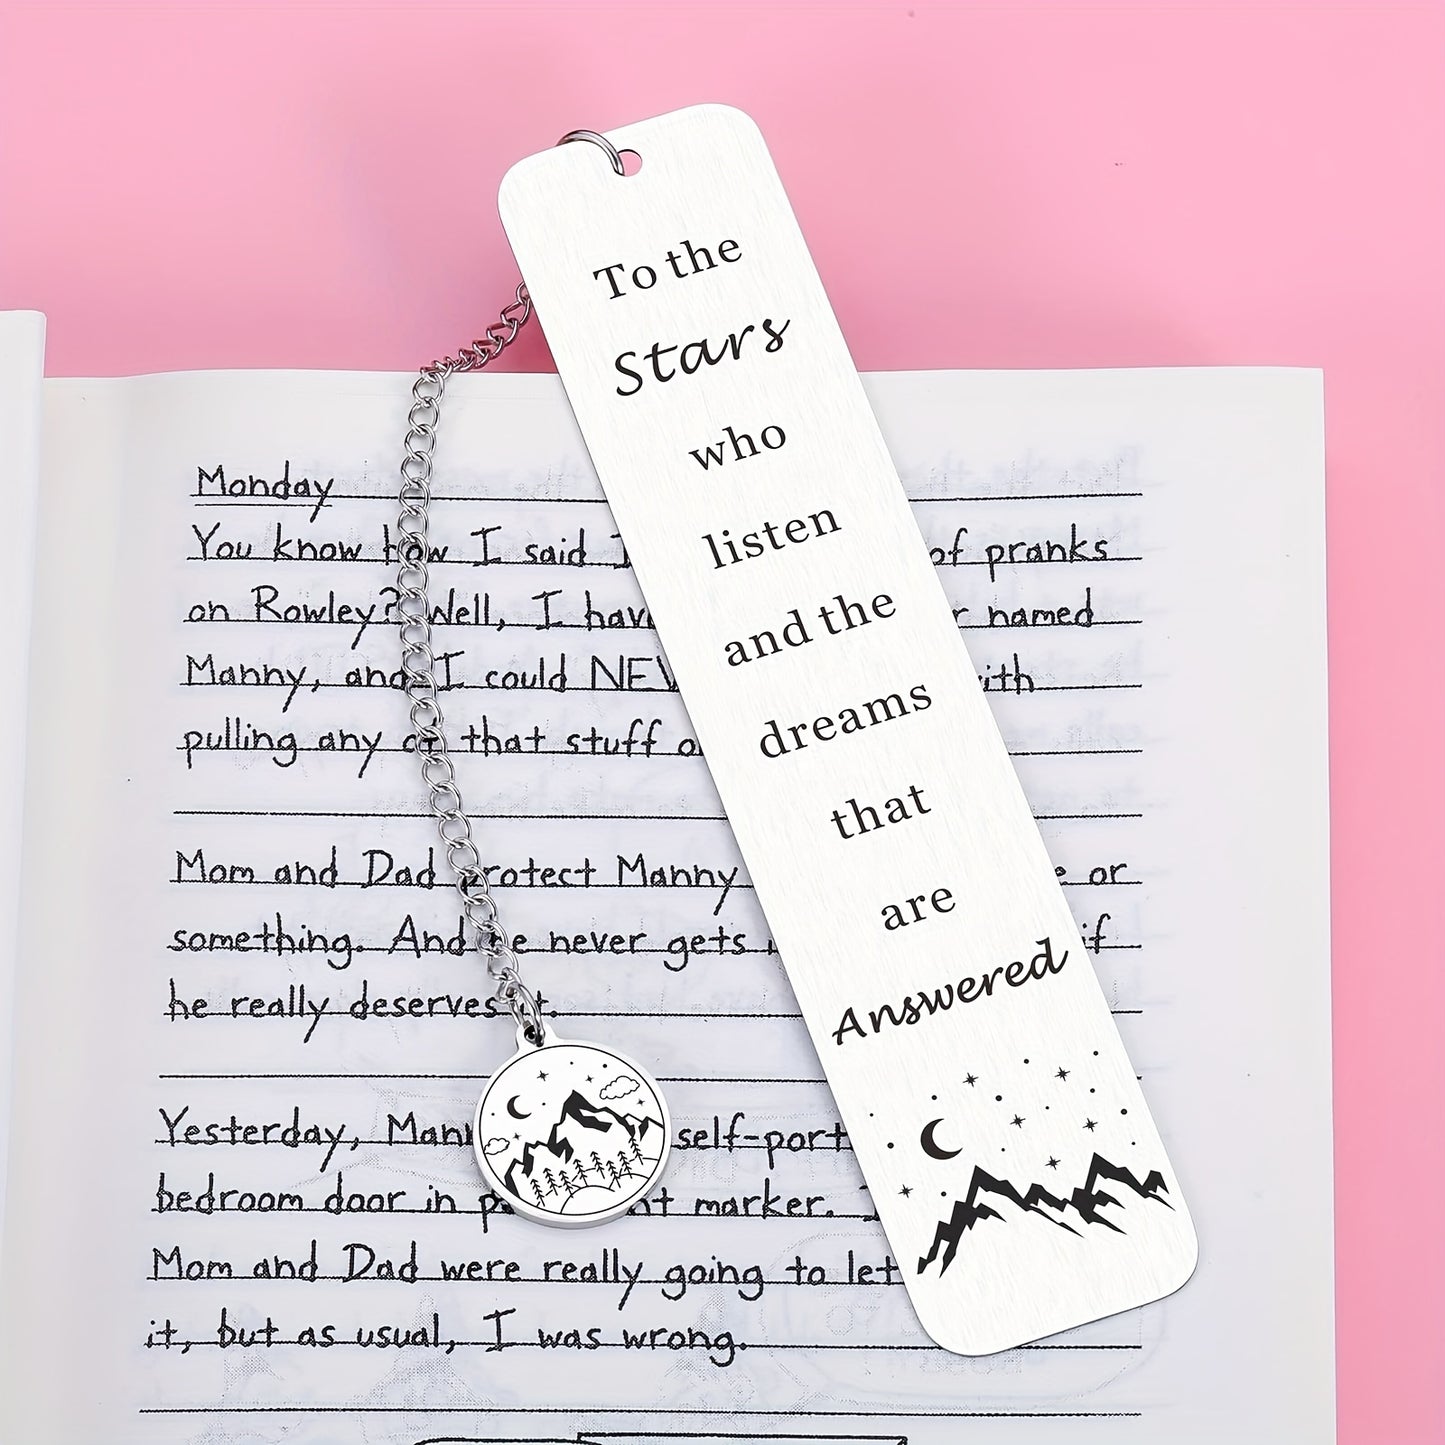 To the
Stars
who
listen
and the
dreams
that
are
Answered
Monday
You know how I said of pranks
on Rowley? Well, I have named
Manny, and I could
pulling any of that stuff
Mom and Dad protect Manny or
something. And he never gets if
he really deserves it.
Yesterday, self-port
bedroom door in marker.
Mom and Dad were really going to let
it, but as usual, I was wrong.